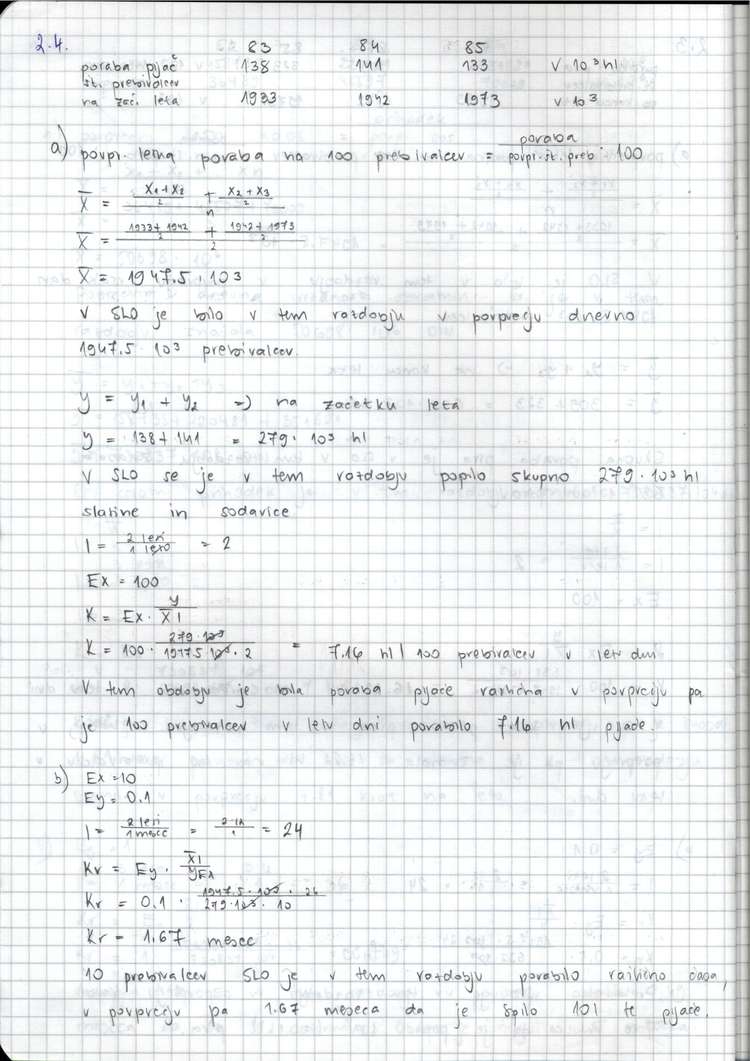 2.4. 83 84 85
poraba pijač 138 141 133 v 10³ hl
št. prebivalcev
na zač. leta 1933 1942 1973 v 10³
a) povpr. letna poraba na 100 prebivalcev = poraba / povpr. št. preb · 100
X̄ = ((X1 + X2)/2 + (X2 + X3)/2) / n
X̄ = ((1933 + 1942)/2 + (1942 + 1973)/2) / 2
X̄ = 1947.5 · 10³
V SLO je bilo v tem razdobju v povprečju dnevno
1947.5 · 10³ prebivalcev.
y = y1 + y2 => na začetku leta
y = 138 + 141 = 279 · 10³ hl
V SLO se je v tem razdobju popilo skupno 279 · 10³ hl
slatine in sodavice
l = 2 leti / 1 leto = 2
Ex = 100
K = Ex · y / X̄ l
K = 100 · 279 · 10³ / 1947.5 · 10³ · 2 = 7.16 hl / 100 prebivalcev v letu dni
V tem obdobju je bila poraba pijače različna v povprečju pa
je 100 prebivalcev v letu dni porabilo 7.16 hl pijače.
b) Ex = 10
Ey = 0.1
l = 2 leti / 1 mesec = 2 · 12 / 1 = 24
Kr = Ey · X̄ l / y Ex
Kr = 0.1 · 1947.5 · 10³ · 24 / 279 · 10³ · 10
Kr = 1.67 mesec
10 prebivalcev SLO je v tem razdobju porabilo različno časa,
v povprečju pa 1.67 meseca da je spilo 10 l te pijače.